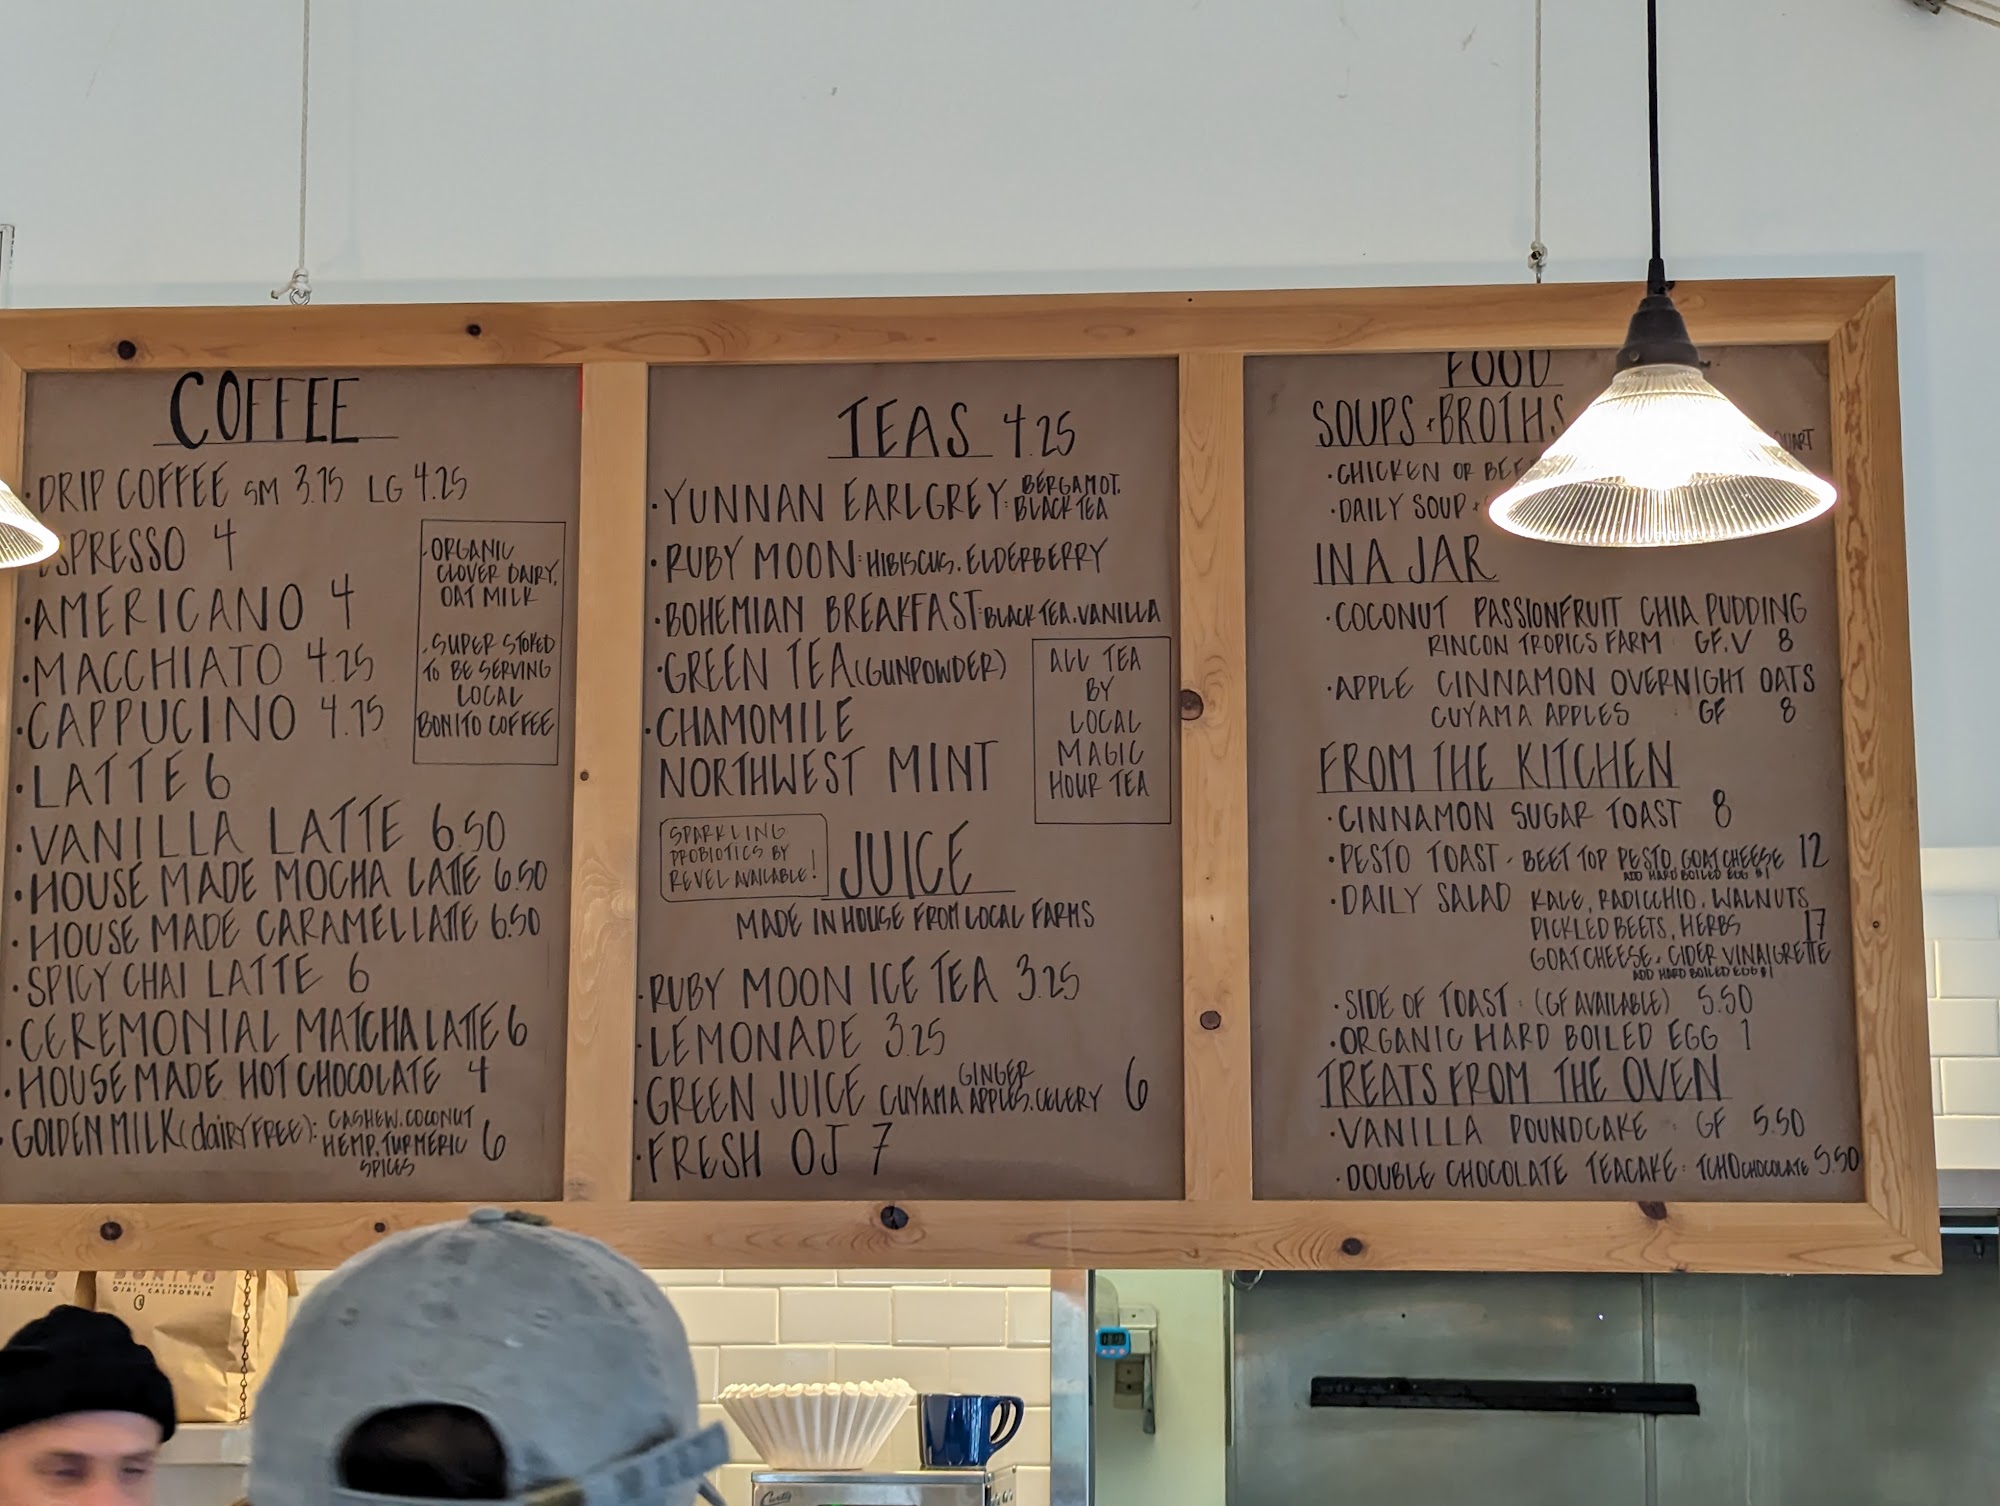 COFFEE
· DRIP COFFEE SM 3.75 LG 4.25
ESPRESSO 4
· AMERICANO 4
· MACCHIATO 4.25
· CAPPUCINO 4.75
· LATTE 6
· VANILLA LATTE 6.50
· HOUSE MADE MOCHA LATTE 6.50
· HOUSE MADE CARAMEL LATTE 6.50
· SPICY CHAI LATTE 6
· CEREMONIAL MATCHA LATTE 6
· HOUSEMADE HOT CHOCOLATE 4
· GOLDEN MILK (dairy FREE): CASHEW. COCONUT
HEMP. TURMERIC 6
SPICES
· ORGANIC
CLOVER DAIRY,
OAT MILK
· SUPER STOKED
TO BE SERVING
LOCAL
BONITO COFFEE
TEAS 4.25
· YUNNAN EARL GREY: BERGAMOT.
BLACK TEA
· RUBY MOON: HIBISCUS. ELDERBERRY
· BOHEMIAN BREAKFAST: BLACK TEA. VANILLA
· GREEN TEA (GUNPOWDER)
· CHAMOMILE
NORTHWEST MINT
ALL TEA
BY
LOCAL
MAGIC
HOUR TEA
SPARKLING
PROBIOTICS BY
REVEL AVAILABLE!
JUICE
MADE IN HOUSE FROM LOCAL FARMS
· RUBY MOON ICE TEA 3.25
· LEMONADE 3.25
· GREEN JUICE CUYAMA APPLES. CELERY 6
GINGER
· FRESH OJ 7
FOOD
SOUPS + BROTHS
· CHICKEN OR
· DAILY SOUP
IN A JAR
· COCONUT PASSIONFRUIT CHIA PUDDING
RINCON TROPICS FARM GF. V 8
· APPLE CINNAMON OVERNIGHT OATS
CUYAMA APPLES · GF 8
FROM THE KITCHEN
· CINNAMON SUGAR TOAST 8
· PESTO TOAST - BEET TOP PESTO, GOAT CHEESE 12
ADD HARD BOILED EGG $1
· DAILY SALAD KALE, RADICCHIO, WALNUTS
PICKLED BEETS, HERBS 17
GOAT CHEESE, CIDER VINAIGRETTE
ADD HARD BOILED EGG $1
· SIDE OF TOAST: (GF AVAILABLE) 5.50
· ORGANIC HARD BOILED EGG 1
TREATS FROM THE OVEN
· VANILLA POUNDCAKE · GF 5.50
· DOUBLE CHOCOLATE TEACAKE: TCHO CHOCOLATE 5.50
BONITO
SMALL BATCH ROASTED IN
OJAI, CALIFORNIA
Curtis